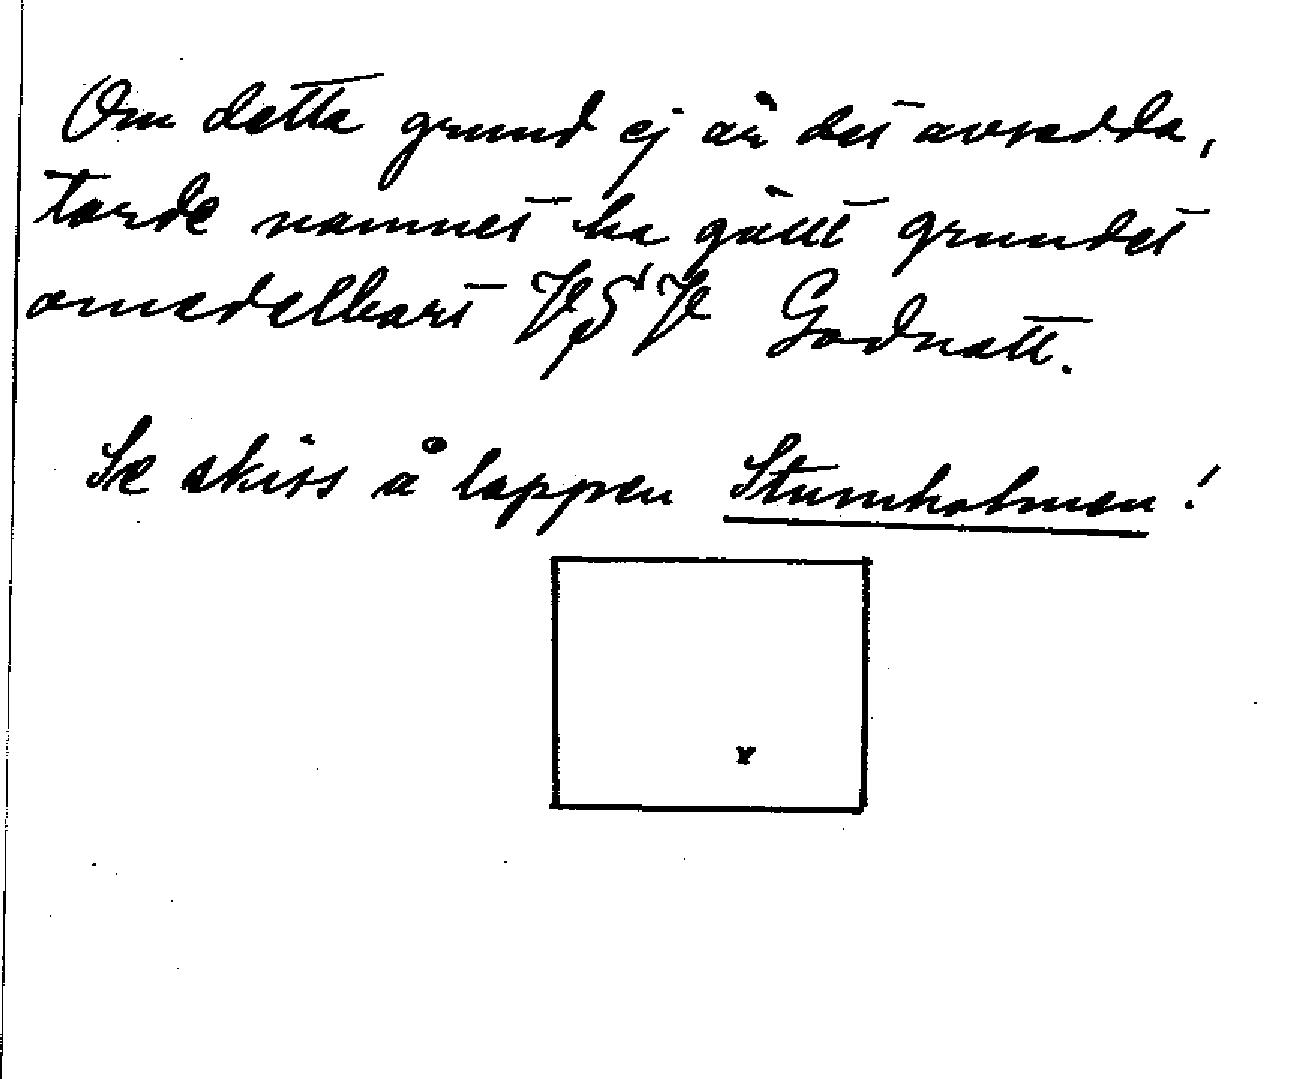 Om detta grund ej är det avsedda,
torde namnet ha gällt grundet
omedelbart VSV Godnatt.
Se skiss å lappen Stumholmen!
x